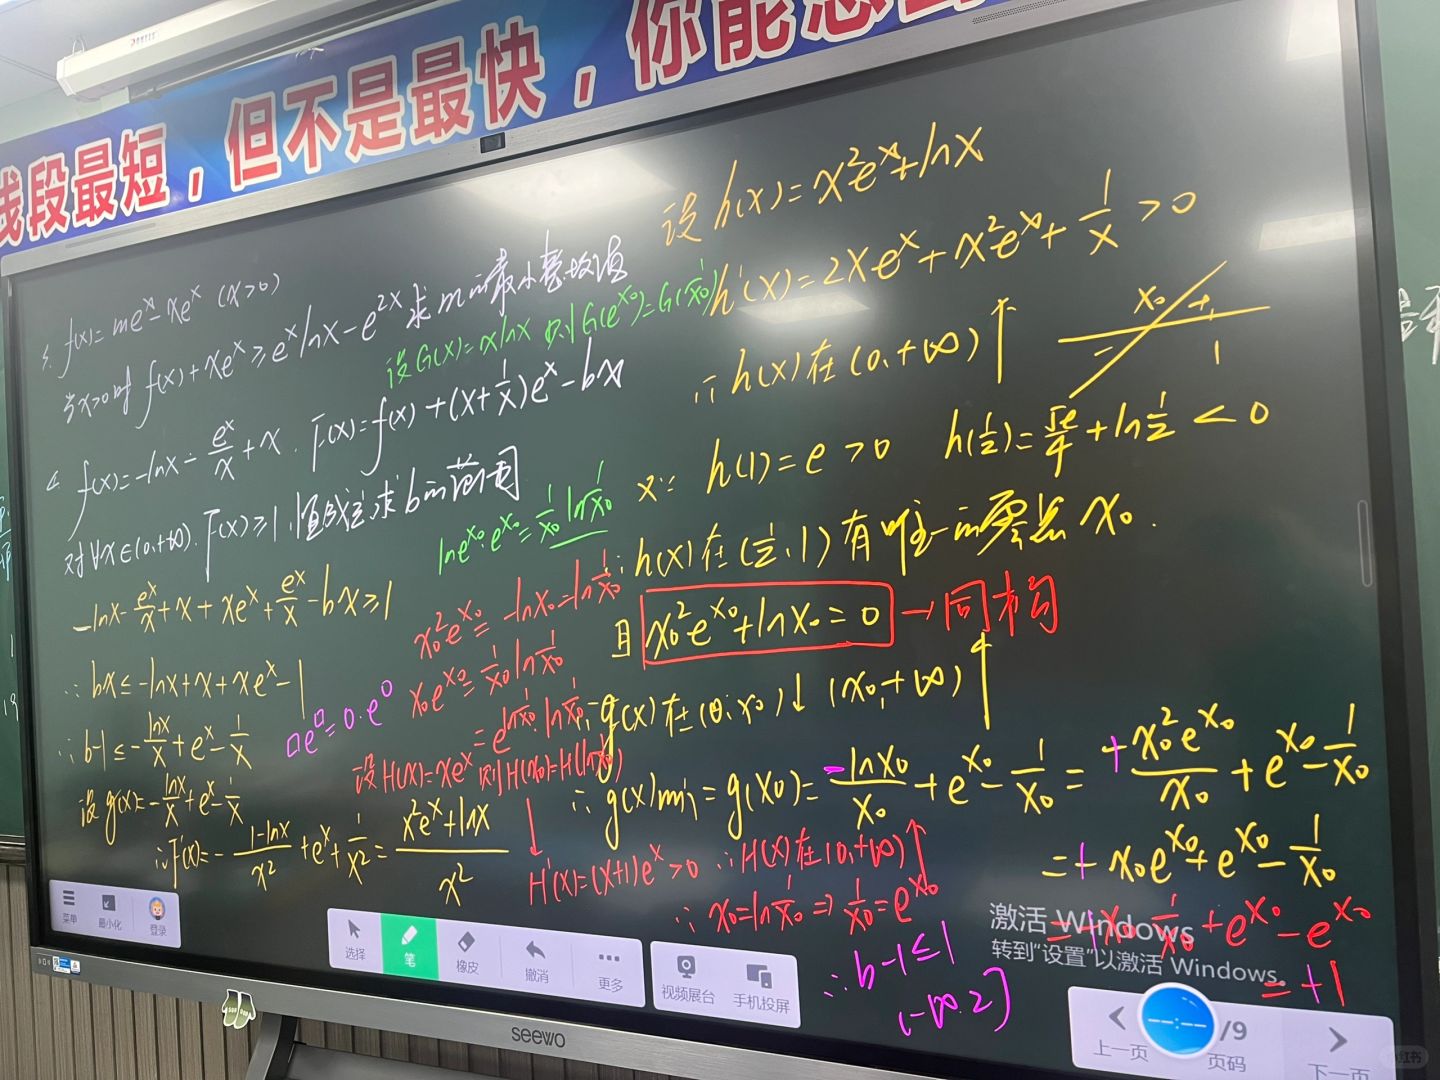 线段最短，但不是最快，你能
3. f(x)=me^x-xe^x (x>0)
当x>0时 f(x)+xe^x≥e^x lnx-e^{2x} 求m的最小整数值
设G(x)=xlnx 则G(e^{x₀})=G(1/x₀)
f(x)=-lnx-e^x/x+x. F(x)=f(x)+(x+1/x)e^x-bx
对∀x∈(0,+∞). F(x)≥1 恒成立 求b的范围
lne^{x₀}·e^{x₀}=1/x₀ ln1/x₀
-lnx-e^x/x+x+xe^x+e^x/x-bx≥1
∴ bx≤-lnx+x+xe^x-1
∴ b-1≤-lnx/x+e^x-1/x
设g(x)=-lnx/x+e^x-1/x
∴F'(x)=-(1-lnx)/x²+e^x+1/x²=(x²e^x+lnx)/x²
x₀²e^{x₀}=-lnx₀=ln1/x₀
x₀e^{x₀}=1/x₀ ln1/x₀
=e^{ln1/x₀}·ln1/x₀
□e^□=0·e^0
设H(x)=xe^x 则H(x₀)=H(ln1/x₀)
H'(x)=(x+1)e^x>0 ∴H(x)在(0,+∞)↑
∴ x₀=ln1/x₀ ⇒ 1/x₀=e^{x₀}
设h(x)=x²e^x+lnx
h'(x)=2xe^x+x²e^x+1/x>0
∴ h(x)在(0,+∞)↑
x₀ +
- 1
又∵ h(1)=e>0 h(1/2)=√e/4+ln1/2<0
∴h(x)在(1/2,1)有唯一的零点x₀.
且 x₀²e^{x₀}+lnx₀=0 →同构
∴g(x)在(0,x₀)↓ (x₀,+∞)↑
∴g(x)min=g(x₀)=-lnx₀/x₀+e^{x₀}-1/x₀=+x₀²e^{x₀}/x₀+e^{x₀}-1/x₀
=+x₀e^{x₀}+e^{x₀}-1/x₀
=+x₀·1/x₀+e^{x₀}-e^{x₀}
=+1
∴b-1≤1
(-∞,2]
激活 Windows
转到"设置"以激活 Windows。
菜单
最小化
登录
选择
笔
橡皮
撤消
更多
视频展台
手机投屏
上一页
--:--
/9
页码
下一页
seewo
小红书